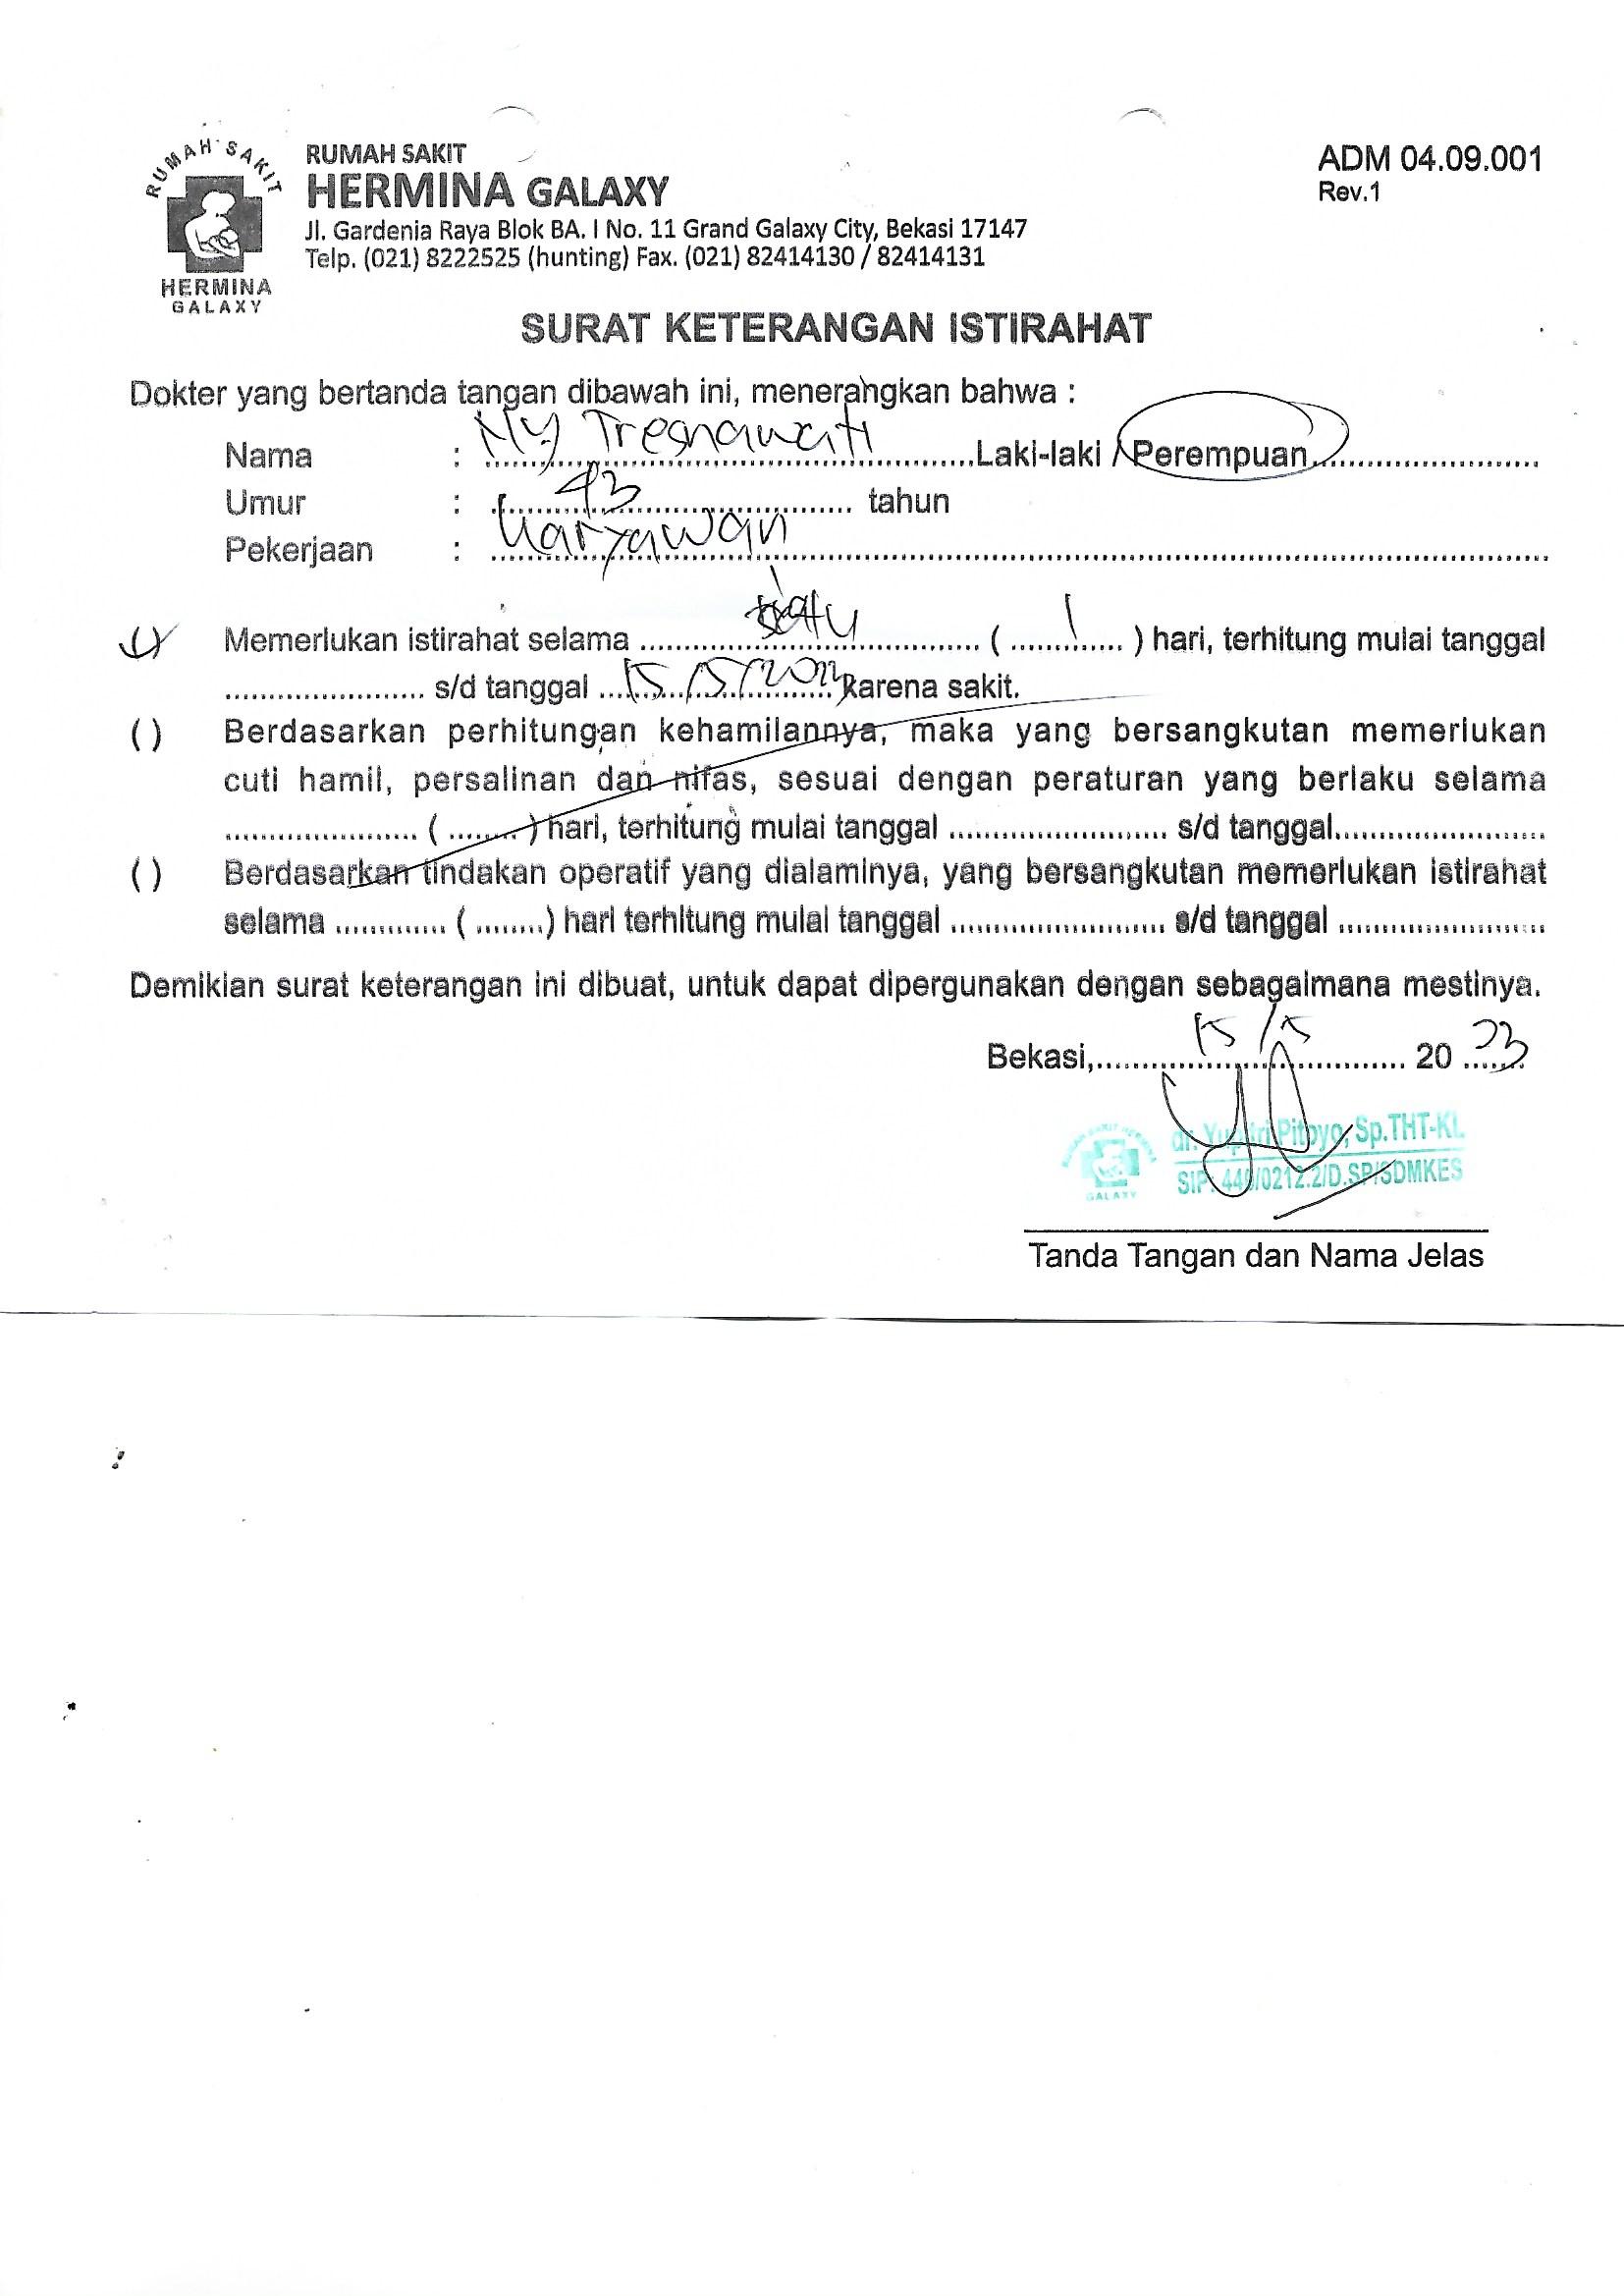 RUMAH SAKIT
HERMINA
GALAXY
RUMAH SAKIT
HERMINA GALAXY
Jl. Gardenia Raya Blok BA. I No. 11 Grand Galaxy City, Bekasi 17147
Telp. (021) 8222525 (hunting) Fax. (021) 82414130 / 82414131
ADM 04.09.001
Rev.1
SURAT KETERANGAN ISTIRAHAT
Dokter yang bertanda tangan dibawah ini, menerangkan bahwa :
Nama : Ny Tresnawati Laki-laki / Perempuan
Umur : 43 tahun
Pekerjaan : Karyawan
Memerlukan istirahat selama satu ( 1 ) hari, terhitung mulai tanggal
s/d tanggal 15/5/2023 karena sakit.
( ) Berdasarkan perhitungan kehamilannya, maka yang bersangkutan memerlukan
cuti hamil, persalinan dan nifas, sesuai dengan peraturan yang berlaku selama
( ........ ) hari, terhitung mulai tanggal ........ s/d tanggal........
( ) Berdasarkan tindakan operatif yang dialaminya, yang bersangkutan memerlukan istirahat
selama ........ ( ........) hari terhitung mulai tanggal ........ s/d tanggal ........
Demikian surat keterangan ini dibuat, untuk dapat dipergunakan dengan sebagaimana mestinya.
Bekasi, 15/5 20 23
GALAXY
dr. Pitoyo, Sp.THT-KL
SIP: 440/0212.2/D.SP/SDMKES
Tanda Tangan dan Nama Jelas